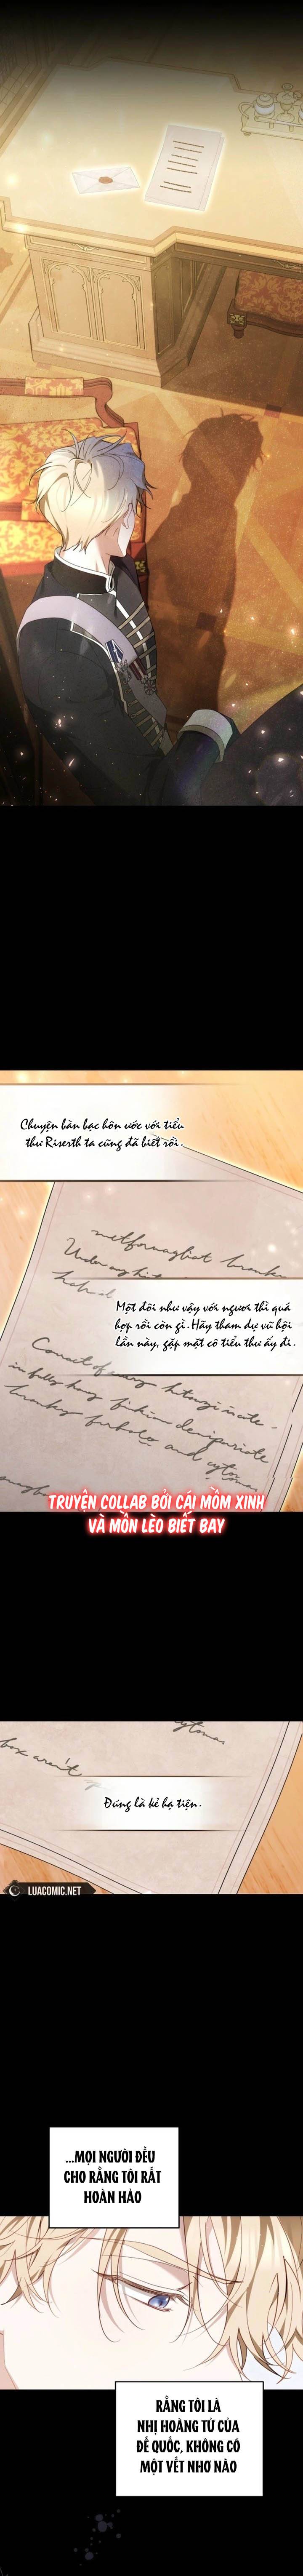 Chuyện bàn bạc hôn ước với tiểu
thư Riserth ta cũng đã biết rồi.
Một đôi như vậy với ngươi thì quá
hợp rồi còn gì. Hãy tham dự vũ hội
lần này, gặp mặt cô tiểu thư ấy đi.
TRUYỆN COLLAB BỞI CÁI MỒM XINH
VÀ MỒN LÈO BIẾT BAY
box aren't
Đúng là kẻ hạ tiện.
LUACOMIC.NET
...MỌI NGƯỜI ĐỀU
CHO RẰNG TÔI RẤT
HOÀN HẢO
RẰNG TÔI LÀ
NHỊ HOÀNG TỬ CỦA
ĐẾ QUỐC, KHÔNG CÓ
MỘT VẾT NHƠ NÀO